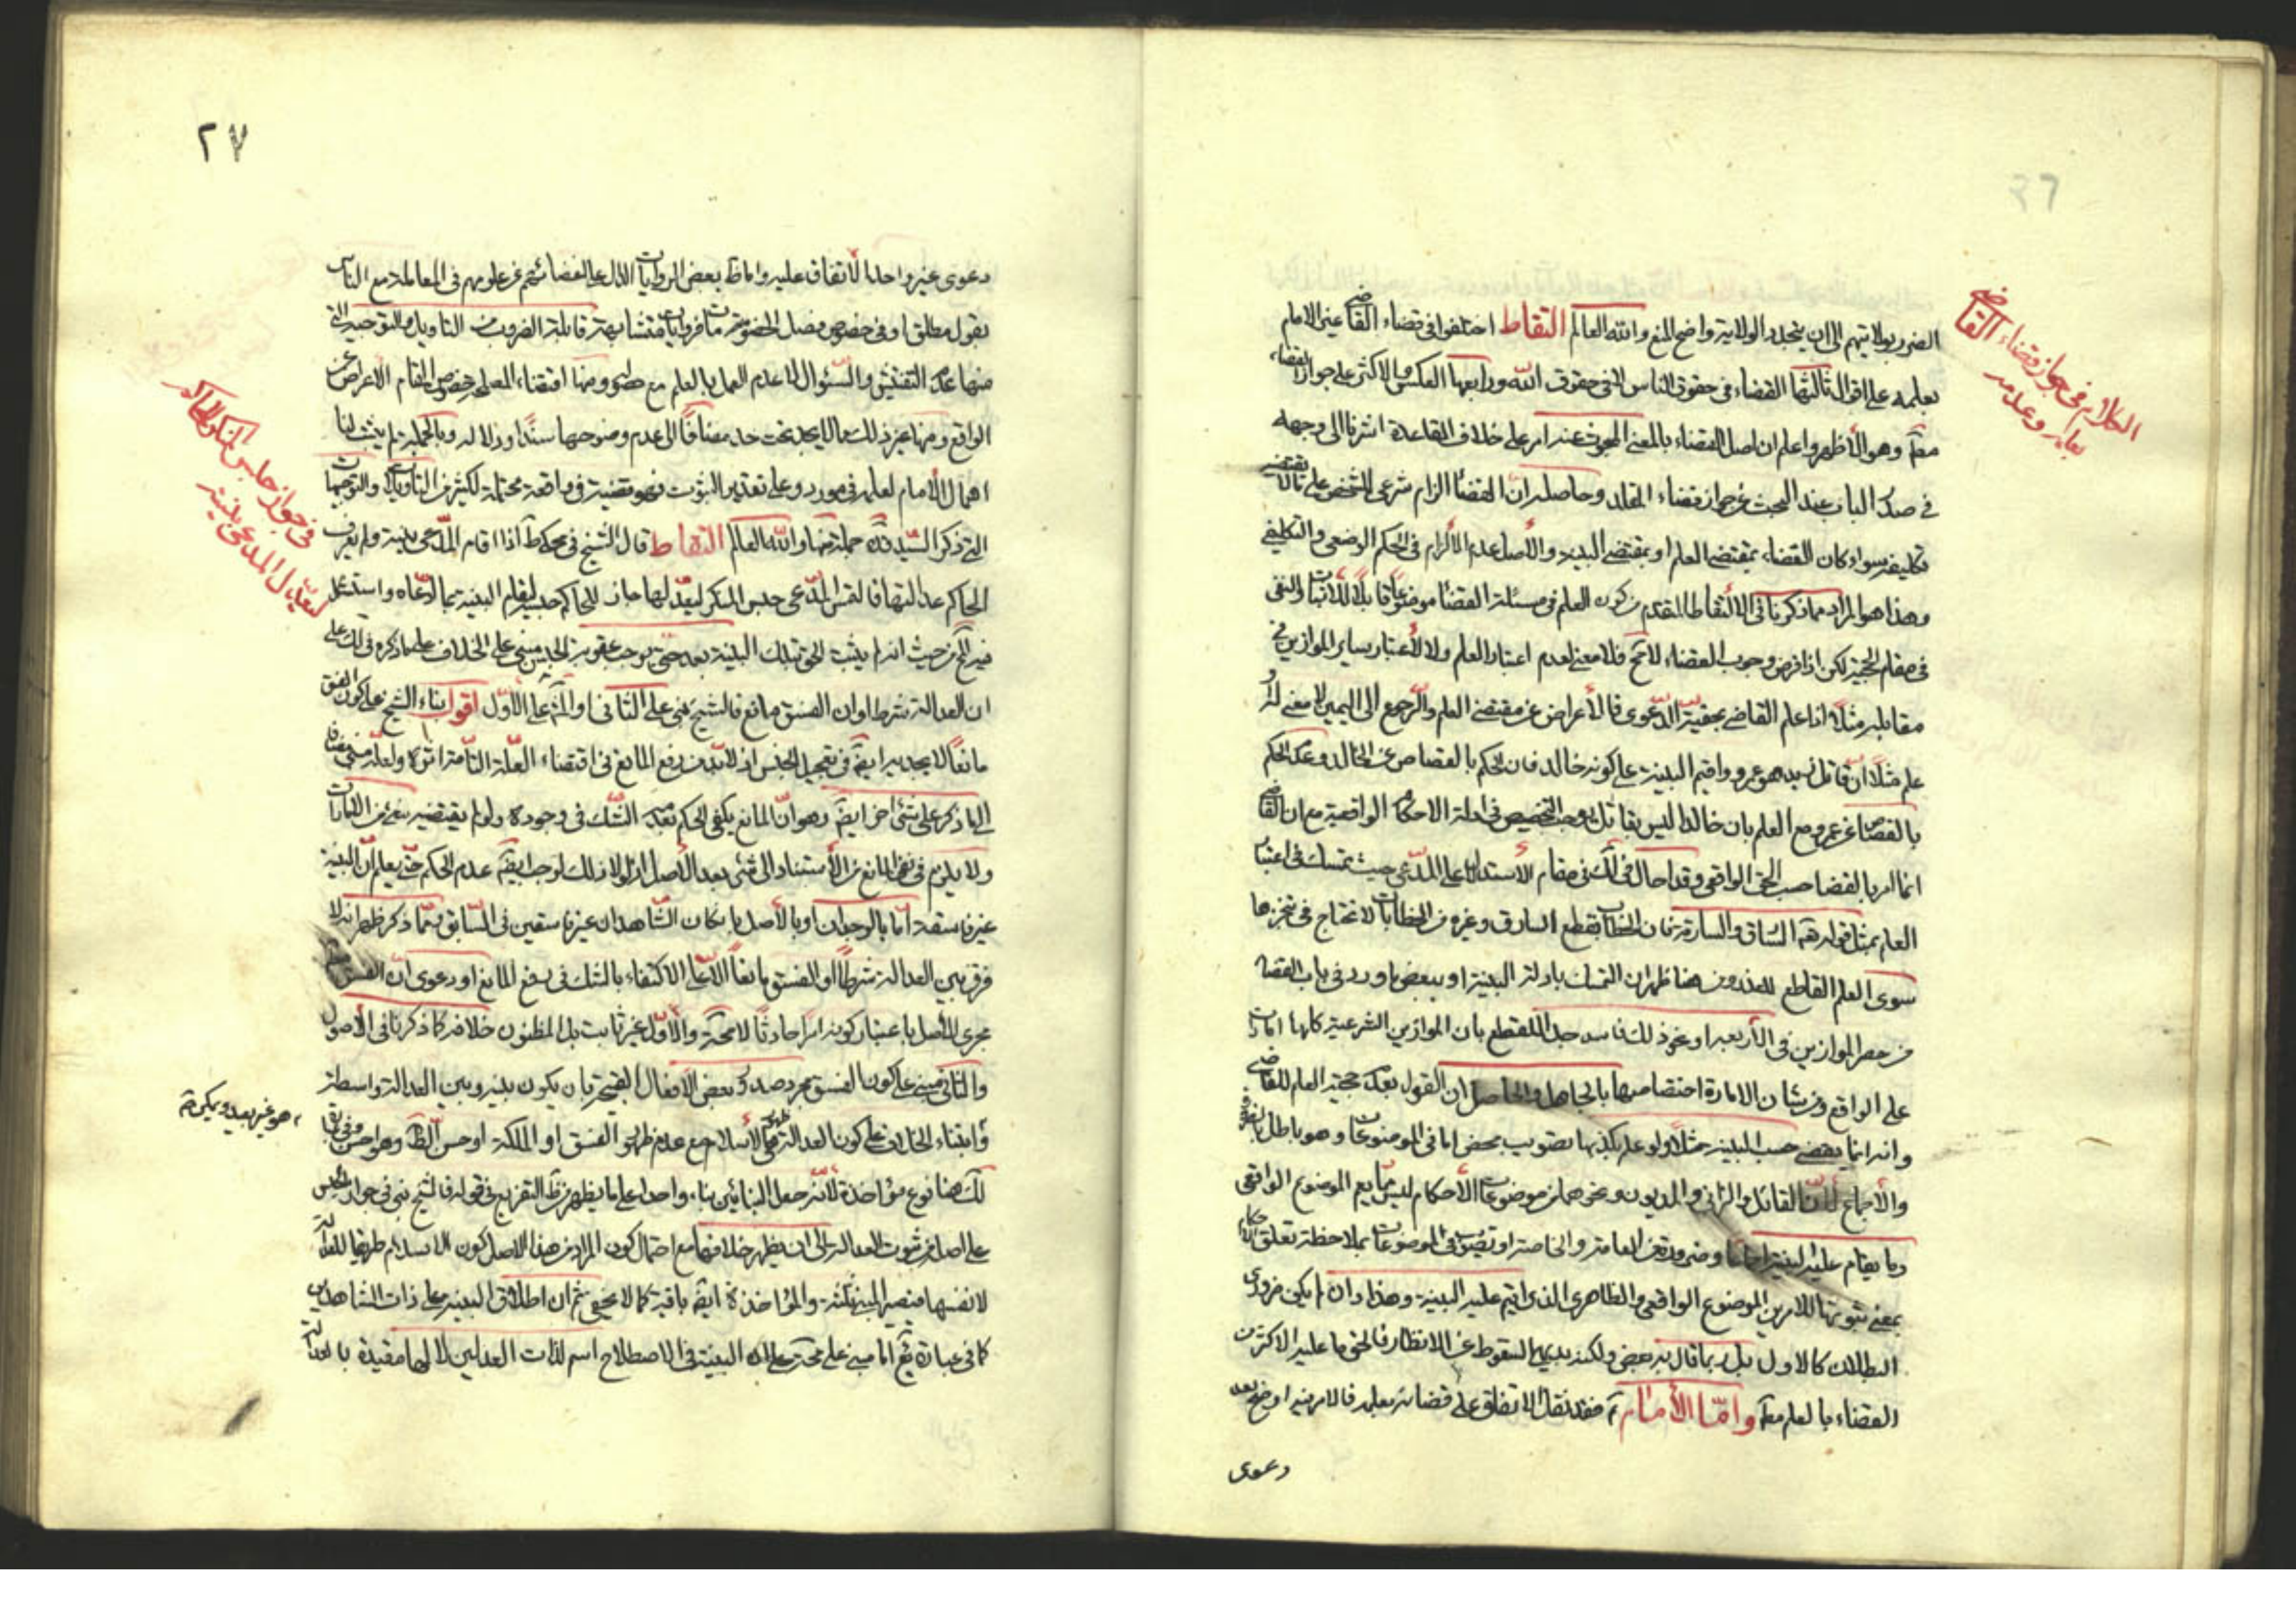 ٢٦
الكلام في جواز قضاء القاضي
بعلمه وعدمه
الضرر بولايتهم الى ان يتجدد الولاية واضح المنع والله العالم التقاط اختلفوا في قضاء القاضي غير الامام
بعلمه على اقوال ثالثها القضاء في حقوق الناس لا في حقوق الله ورابعها العكس والاكثر على جواز القضاء
مطلقا وهو الأظهر واعلم ان اصل القضاء بالمعنى المبحوث عنه امر على خلاف القاعدة اشرنا الى وجهه
في صدر الباب عند البحث عن جواز قضاء المقلد وحاصله ان القضاء الزام شرعي للشخص على ما لا يقتضيه
تكليفه سواء كان القضاء بمقتضى العلم او بمقتضى البينة والأصل عدم الألزام في الحكم الوضعي والتكليفي
وهذا هو المراد مما ذكرنا في الالتقاط المتقدم من كون العلم في مسئلة القضاء موضوعا قابلا للأثبات والنفي
في مقام الحجية لكن اذا فرض وجوب القضاء لا مح فلا معنى لعدم اعتبار العلم ولا لأعتبار ساير الموازين في
مقابله مثلا اذا علم القاضي بحقية الدعوى فالأعراض عن مقتضى العلم والرجوع الى اليمين لا معنى له
علم مثلا ان قاتل زيد هو عمرو واقيم البينة على كونه خالد فان الحكم بالقصاص عن الخالد وعدم الحكم
بالقصاص عن عمرو مع العلم بان خالدا ليس بقاتل يوجب التخصيص في ادلة الاحكام الواقعية مع ان القاضي
انما امر بالقضاء حسب الحق الواقعي وقد احال في لك في مقام الأستدلال على المدعي حيث تمسك في اعتبار
العلم بمثل قوله تعالى السارق والسارقة فان الخطاب بقطع السارق وغيره من الخطابات لا تحتاج في تنجزها
سوى العلم القاطع للعذر ومن هنا ظهر ان التمسك بادلة البينة او ببعض ما ورد في باب القضاء
من حصر الموازين في الأربعة او نحو ذلك فاسد جدا للقطع بان الموازين الشرعية كلها امارات
على الواقع ومن شان الامارة اختصاصها بالجاهل والحاصل ان القول بعدم حجية العلم للقاضي
وانه انما يقضي حسب البينة مثلا ولو علم بكذبها تصويب محض اما في الموضوعات وهو باطل بالضرورة
والأجماع لأن القاتل والزاني والمديون ونحوهما من موضوعات الأحكام ليس مما يعم الموضوع الواقعي
وما يقام عليه البينة اجماعا وضرورة من العامة والخاصة او تصويب في الموضوعات بملاحظة تعلق الاحكام
بمعنى ثبوتها للامرين الموضوع الواقعي والظاهري الذي اقيم عليه البينة وهذا وان لم يكن ضروري
البطلان كالاول بل ربما قال به بعض ولكنه بديهي السقوط عن الانظار فالحق ما عليه الاكثر من
القضاء بالعلم مطلقا واما الأمام فقد نقل الاتفاق على قضائه بعلمه فالامر فيه اوضح بعد
دعوى
٢٧
دعوى غير واحد الأتفاق عليه واما ظ بعض الروايات الدال على اغضائهم عن علومهم في المعاملة مع الناس
بقول مطلق او في خصوص فصل الخصومة فروايات متشابهة قابلة لضروب من التاويل والتوجيه التي
منها عدم التفتيش والسؤال لا عدم العمل بالعلم مع حصوله ومنها اقتضاء المصلحة خصوص المقام الاعراض عن
الواقع ومنها غير ذلك مما لا يجد تحت حد مضافا الى عدم وضوحها سندا ودلالة وبالجملة لم يثبت لنا
اهمال الأمام لعلمه في مورد وعلى تقدير الثبوت فهو قضية في واقعة محتملة لكثير من التاويلات والتوجيهات
التي ذكر السيد قده جملة منها والله العالم التقاط قال الشيخ في محكي ط اذا اقام المدعي بينة ولم يعرف
الحاكم عدالتها فالتمس المدعي حبس المنكر ليعدلها جاز للحاكم حبسه لقيام البينة بما ادعاه واستدل
في جواز حبس المنكر للحاكم
ليعدل المدعي بينة
فيه لك من حيث انه لم يثبت الحق بتلك البينة بعد حتى يوجب عقوبة الحبس مبني على الخلاف على ما ذكره في لك على
ان العدالة شرط او ان الفسق مانع فالشيخ بنى على الثاني والمشهور على الأول اقول بناء الشيخ على كون الفسق
مانعا لا يجديه ايضا في تعجيل الحبس اذ لا بد من رفع المانع في اقتضاء العلة التامة اثره ولعله مبني مضافا
الى ما ذكر على شئ اخر ايضا وهو ان المانع يكفي في الحكم بعدمه الشك في وجوده ولو لم يقتضيه شئ من الامارات
ولا يلزم في نفي المانع من الأستناد الى شئ بعد الأصل اذ لولا ذلك لوجب ايضا عدم الحكم حتى يعلم ان البينة
غير فاسقة اما بالوجدان او بالأصل بان كان الشاهدان غير فاسقين في السابق ومما ذكر ظهر انه لا
فرق بين العدالة شرطا او الفسق مانعا الا على الاكتفاء بالشك في دفع المانع او دعوى ان الفسق
مجرى الأصل باعتبار كونه امرا حادثا لا محة والأول غير ثابت بل المظنون خلافه كما ذكرنا في الأصول
والثاني مبني على كون الفسق مجرد صدور بعض الأفعال القبيحة بان يكون بينه وبين العدالة واسطة
وهو غير بعيد ويمكن ثم
وابتناء الخلاف على كون العدالة هي ظهور الأسلام مع عدم ظهور الفسق او الملكة او حسن الظاهر وهو احسن وفي بقايا
لك هنا نوع مؤاخذة لأنه جعل البنائين بناء واحدا على ما يظهر من ظ التفريع في قوله فالشيخ بنى في جواز الحبس
على اصله من ثبوت العدالة الى ان يظهر خلافها مع احتمال كون المراد من هذا الاصل كون الاسلام طريقا للعدالة
لا نفسها فيصير المبنى ثلثة والمؤاخذة ايضا باقية كما لا يخفى ثم ان اطلاق البينة على ذات الشاهدين
كما في عبارة يع اما مبني على تجريد البينة في الاصطلاح اسم لذات العدلين لا لها مقيدة بالعدالة